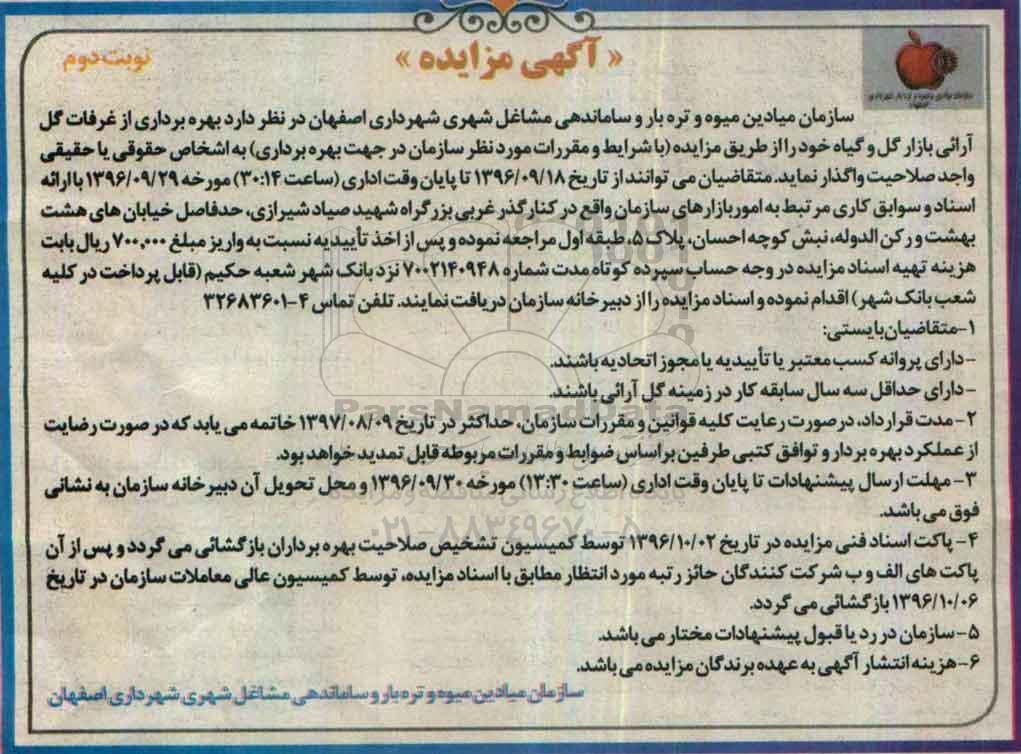 « آگهی مزایده »
نوبت دوم
سازمان میادین میوه و تره بار و ساماندهی مشاغل شهری شهرداری اصفهان در نظر دارد بهره برداری از غرفات گل
آرائی بازار گل و گیاه خود را از طریق مزایده (با شرایط و مقررات مورد نظر سازمان در جهت بهره برداری) به اشخاص حقوقی یا حقیقی
واجد صلاحیت واگذار نماید. متقاضیان می توانند از تاریخ ۱۳۹۶/۰۹/۱۸ تا پایان وقت اداری (ساعت ۳۰:۱۴) مورخه ۱۳۹۶/۰۹/۲۹ با ارائه
اسناد و سوابق کاری مرتبط به امور بازارهای سازمان واقع در کنارگذر غربی بزرگراه شهید صیاد شیرازی، حدفاصل خیابان های هشت
بهشت و رکن الدوله، نبش کوچه احسان، پلاک ۵، طبقه اول مراجعه نموده و پس از اخذ تأییدیه نسبت به واریز مبلغ ۷۰۰,۰۰۰ ریال بابت
هزینه تهیه اسناد مزایده در وجه حساب سپرده کوتاه مدت شماره ۷۰۰۲۱۴۰۹۴۸ نزد بانک شهر شعبه حکیم (قابل پرداخت در کلیه
شعب بانک شهر) اقدام نموده و اسناد مزایده را از دبیرخانه سازمان دریافت نمایند. تلفن تماس ۴-۳۲۶۸۳۶۰۱
۱-متقاضیان بایستی:
-دارای پروانه کسب معتبر یا تأییدیه یا مجوز اتحادیه باشند.
-دارای حداقل سه سال سابقه کار در زمینه گل آرائی باشند.
۲-مدت قرارداد، درصورت رعایت کلیه قوانین و مقررات سازمان، حداکثر در تاریخ ۱۳۹۷/۰۸/۰۹ خاتمه می یابد که در صورت رضایت
از عملکرد بهره بردار و توافق کتبی طرفین براساس ضوابط و مقررات مربوطه قابل تمدید خواهد بود.
۳-مهلت ارسال پیشنهادات تا پایان وقت اداری (ساعت ۱۳:۳۰) مورخه ۱۳۹۶/۰۹/۳۰ و محل تحویل آن دبیرخانه سازمان به نشانی
فوق می باشد.
۴-پاکت اسناد فنی مزایده در تاریخ ۱۳۹۶/۱۰/۰۲ توسط کمیسیون تشخیص صلاحیت بهره برداران بازگشائی می گردد و پس از آن
پاکت های الف و ب شرکت کنندگان حائز رتبه مورد انتظار مطابق با اسناد مزایده، توسط کمیسیون عالی معاملات سازمان در تاریخ
۱۳۹۶/۱۰/۰۶ بازگشائی می گردد.
۵-سازمان در رد یا قبول پیشنهادات مختار می باشد.
۶-هزینه انتشار آگهی به عهده برندگان مزایده می باشد.
سازمان میادین میوه و تره بار و ساماندهی مشاغل شهری شهرداری اصفهان
ParsNamadData
۰۲۱-۸۸۳۴۹۶۷۰-۵